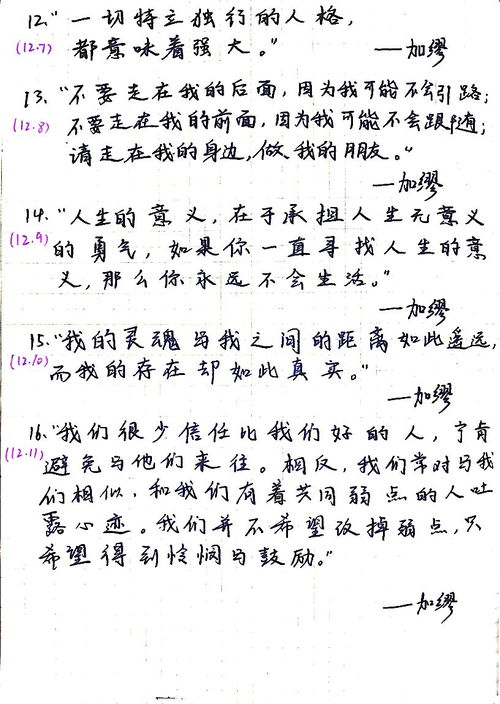 12."一切特立独行的人格,
(12.7) 都意味着强大。" —加缪
13."不要走在我的后面,因为我可能不会引路;
(12.8) 不要走在我的前面,因为我可能不会跟随;
请走在我的身边,做我的朋友。"
—加缪
14."人生的意义,在于承担人生无意义
(12.9) 的勇气,如果你一直寻找人生的意
义,那么你永远不会生活。"
—加缪
15."我的灵魂与我之间的距离如此遥远,
(12.10) 而我的存在却如此真实。"
—加缪
16."我们很少信任比我们好的人,宁肯
(12.11) 避免与他们来往。相反,我们常对与我
们相似,和我们有着共同弱点的人吐
露心迹。我们并不希望改掉弱点,只
希望得到怜悯与鼓励。"
—加缪